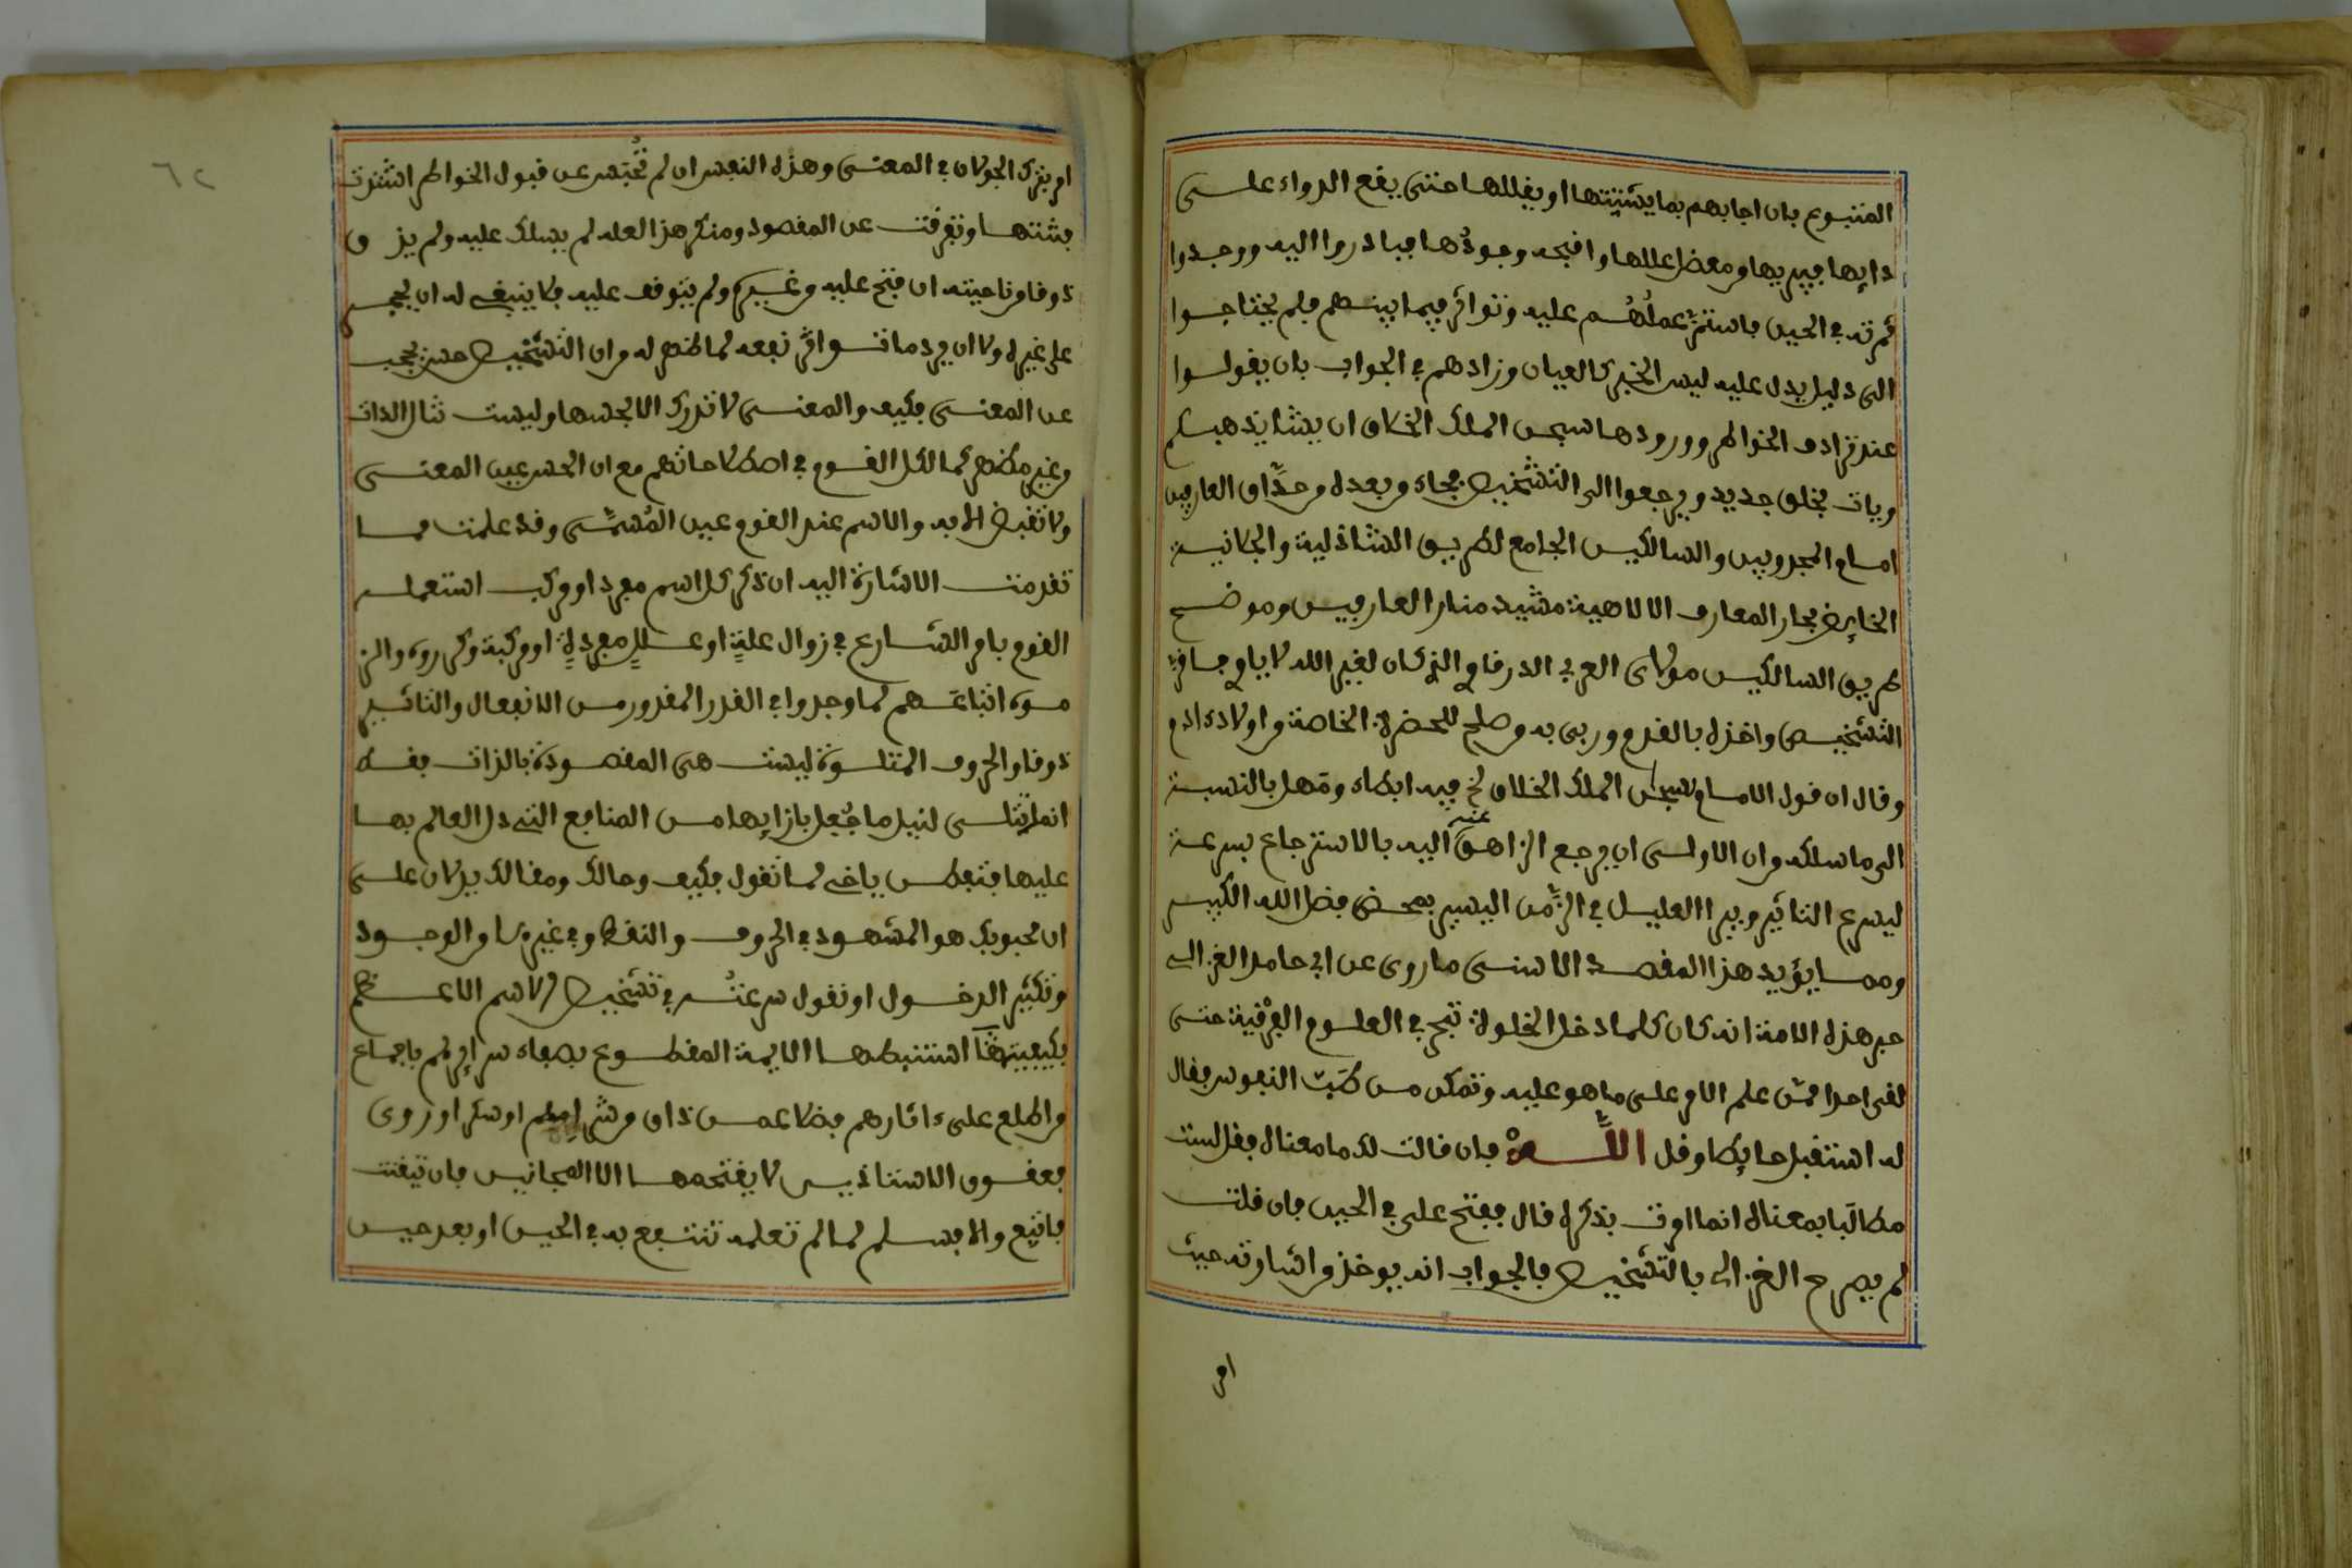 المتبوع بان اجابهم بما يشتتها او يقللها حتى يقع الدواء على
دايها فيبريها ومعضل عللها وا فبحه وجودُها فبادروا اليه ووجدوا
ثمرته في الحين فاستمرّ عملُهُم عليه وتواتر فيما بينهم فلم يحتاجوا
الى دليل يدل عليه ليس الخبر كالعيان وزادهم في الجواب بان يقولوا
عند ترادف الخواطر وورودها سبحن الملك الخلاق ان يشا يذهبكم
ويات بخلق جديد ويرجعوا الى التشخيص فجاء وبعده وحذّاق العارفين
امام المجذوبين والسالكين الجامع لطريق الشاذلية والجلانية
الخايض بحار المعارف الالاهية مشيد منار العارفين وموضح
طريق السالكين مولاى العربي الدرقاوي الذي كان لغير الله لا ياوي جافي
التشخيص واخذه بالقدم وربى به وصلح للحضرة الخاصة واولاده ادم
وقال ان قول الامام سبحن الملك الخلاق لخ فيه ابطاء ومهل بالنسبة
الى ما سلكه وان الاولى ان يرجع الزاهق عنه اليه بالاسترجاع بسرعة
ليسرع التاثير ويبرا العليل في الزّمن اليسير بمحض فضل الله الكبير
ومما يؤيد هذا المقصد الاسنى ما روى عن ابي حامد الغزالي
حبر هذه الامة انه كان كلما دخل الخلوة تبحر في العلوم العِرْفية حتى
لقي احدا ممن علم الامر على ما هو عليه وتمكن من طبّ النفوس فقال
له استقبل حايطا وقل اللَّــهْ فان قالت لك ما معناه فقل لست
مطالَبا بمعناه انما اوت بذكره قال ففتح علي في الحين فان قلت
لم يصرح الغزالي بالتشخيص فالجواب انه يوخذ من اشارته حيث
امر
٦٢
امر بترك الجولان في المعنى وهذه النفس ان لم تُحبَس عن قبول الخواطر اشتدت
بشتتها وتفرقت عن المقصود ومنكر هذا العله لم يسلك عليه ولم يذ ق
ذوقا وناحيته ان فتح عليه وغيره ولم يتوقف عليه فلا ينبغي له ان يحجر
على غيره ولا ان يرد ما تواتر نفعه لما ظهر له من ان التشخيص حسن يحجب
عن المعنى فكيف والمعنى لا تدرك الا بالحس وليست تنال الذات
وغير مظهر كما لكل القوم في اصطلاحاتهم مع ان الحس عين المعنى
ولا تقبض الا به والاسم عند القوم عين المُسمّى وقد علمت مما
تقدمت الاشارة اليه ان ذكر كل اسم مفرد او مركب استعمله
القوم بامر الشارع في زوال علةٍ او عللٍ مفردةٍ او مركبة وكرروه والز
موه اتباعهم لما وجدوا في القدر المقدور من الانفعال والتاثير
ذوقا والحروف المتلوة ليست هي المقصودة بالذات فقط
انما تتلى لنيل ما جُعل بازايها من المنافع التي دل العالم بها
عليها فتفطن ياخي لما تقول فكيف وحالك ومقالك يدلان على
ان محبوبك هو المشهود في الحروف والنقط وفي غيرها والوجود
وتكثير الدخول او تقول سرعتُه في تشخيص الاسم الاعظم
بكيفيتها استنبطها الايمة المقطوع بصفاء سرايرهم باجماع
من اطلع على ءاثارهم فضلا عمن ذاق من شرابهم او سكر او روى
فعقول الاستاذين لا يفتحها الا المجانين فان تيقنت
فاتبع والا فسلم لما لم تعلمه تنتفع به في الحين او بعد حين